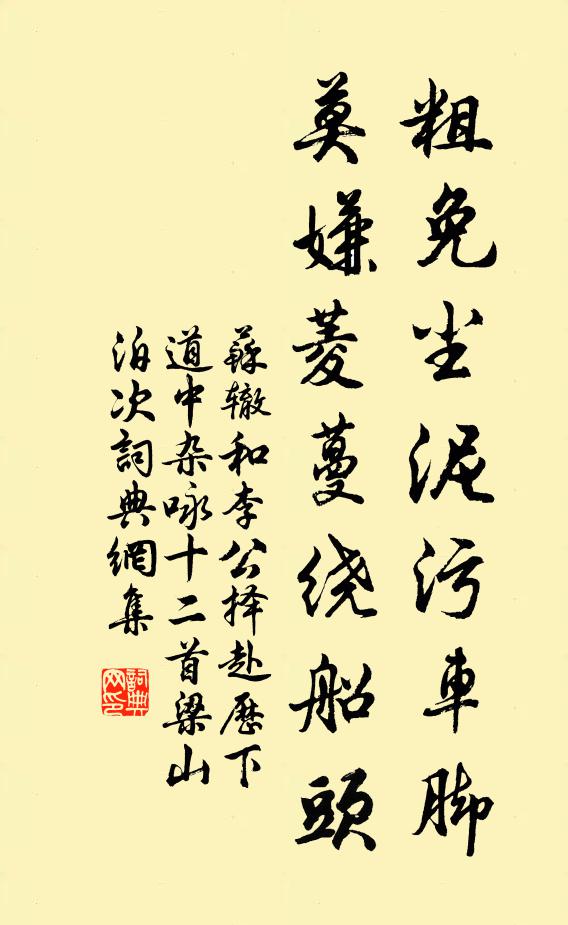 粗免尘泥污車脚
莫嫌菱蔓绕船頭
蘇辙和李公择赴歷下
道中杂咏十二首梁山
泊次詞典網集
詞典
网印